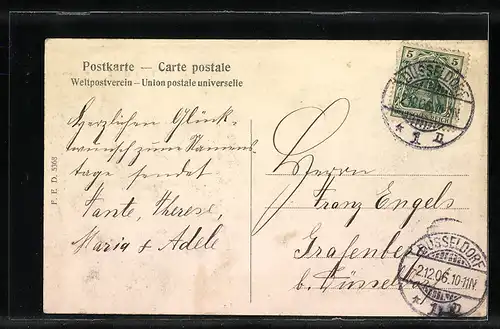 Postkarte — Carte postale
Weltpostverein — Union postale universelle
5 5
DÜSSELDORF
* 1 n
Herzlichen Glück-
wunsch zum Namens-
tage sendet
Tante, Therese,
Maria & Adele
P. E. D. 5168
Herrn
Franz Engels
Grafenberg
b. Düssel
DÜSSELDORF
2.12.06. 10-11N
* 1 n